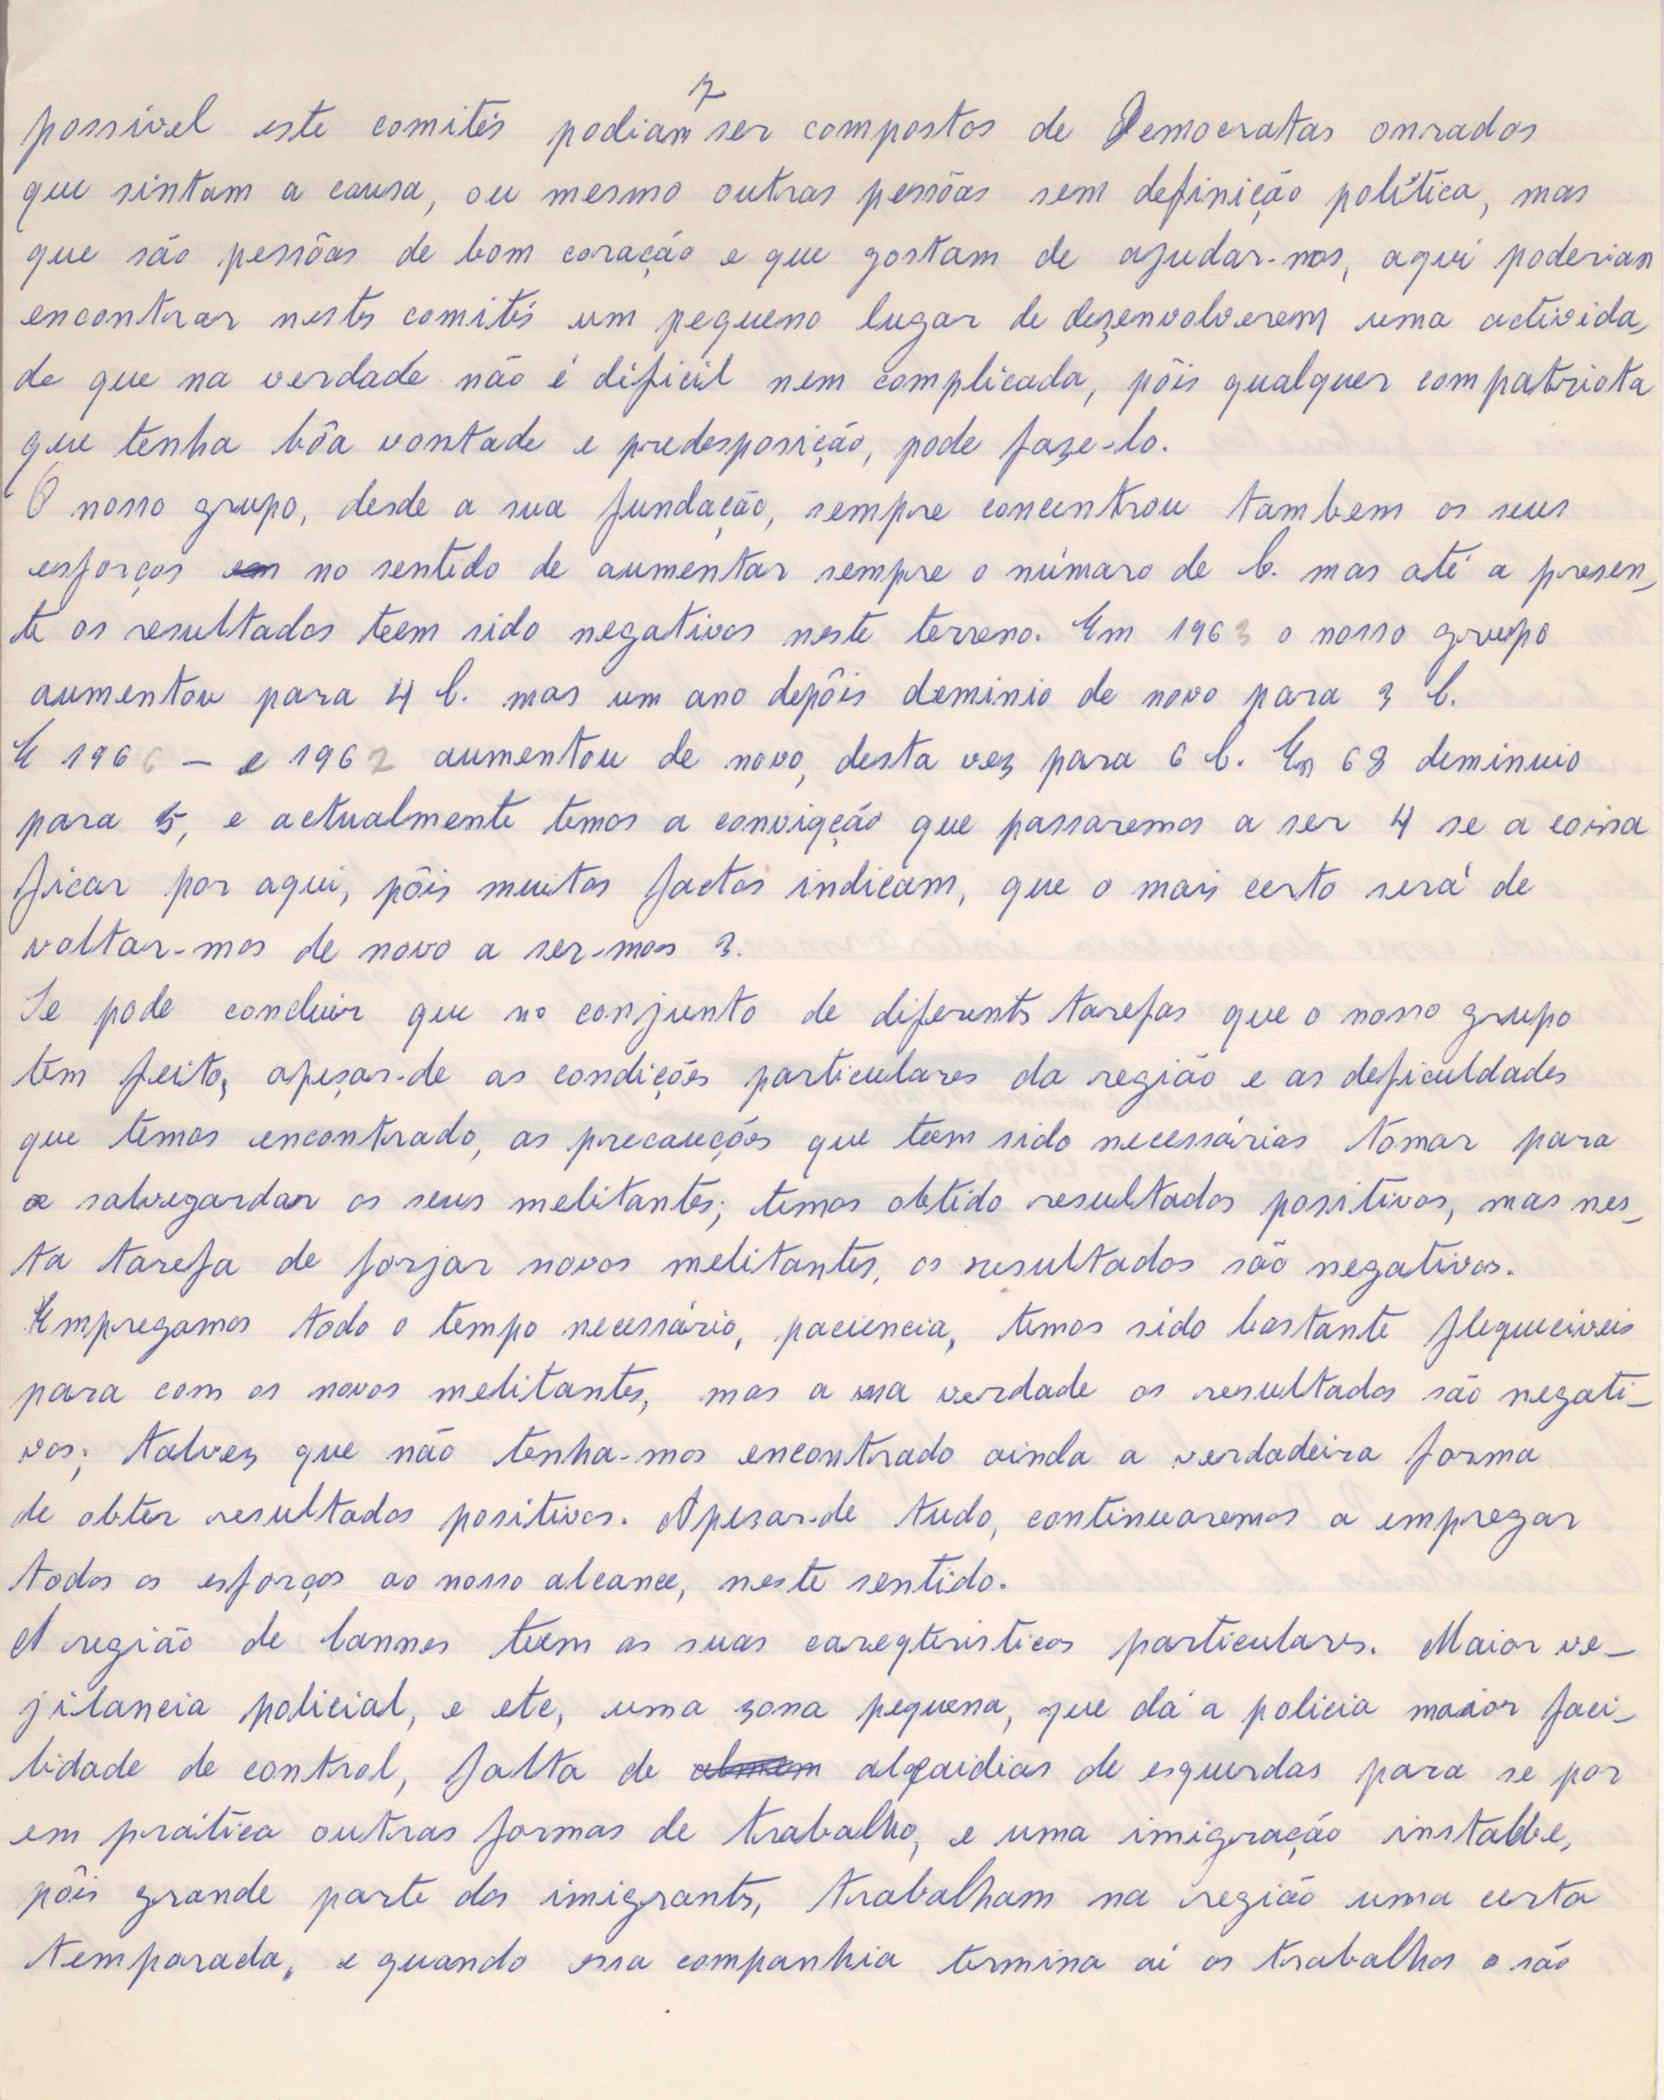 7
possivel este comités podiam ser compostos de Democratas onrados
que sintam a causa, ou mesmo outras pessôas sem definição polítìca, mas
que são pessôas de bom coração e que gostam de ajudar-nos, aqui poderiam
encontrar nestes comités um pequeno lugar de dezenvolverem uma activida-
de que na verdade não é dificil nem complicada, pôis qualquer compatriota
que tenha bôa vontade e predesposição, pode faze-lo.
O nosso grupo, desde a sua fundação, sempre concentrou tambem os seus
esforços em no sentido de aumentar sempre o númaro de C. mas até a presen-
te os resultados teem sido negativos neste terreno. Em 1963 o nosso grupo
aumentou para 4 C. mas um ano depôis deminio de novo para 3 C.
E 1966 - e 1967 aumentou de novo, desta vez para 6 C. En 68 deminuio
para 5, e actualmente temos a convigção que passaremos a ser 4 se a coisa
ficar por aqui, pôis muitos factos indicam, que o mais certo será de
voltar-mos de novo a ser-mos 3.
Se pode concluir que no conjunto de diferentes tarefas que o nosso grupo
tem feito, apesar-de as condições particulares da região e as deficuldades
que temos encontrado, as precauções que teem sido necessárias tomar para
salvegardar os seus melitantes; temos obtido resultados positivos, mas nes-
ta tarefa de forjar novos melitantes, os resultados são negativos.
Empregamos todo o tempo necessário, paciencia, temos sido bastante flequeiveis
para com os novos melitantes, mas a verdade os resultados são negati-
vos; talvez que não tenha-mos encontrado ainda a verdadeira forma
de obter resultados positivos. Apesar-de tudo, continuaremos a empregar
todos os esforços ao nosso alcance, neste sentido.
A região de Cannes teem as suas careqteristicas particulares. Maior ve-
jilancia policial, e etc, uma zona pequena, que dá a policia maior faci-
lidade de control, falta de alçaidias de esquerdas para se por
em prática outras formas de trabalho, e uma imigração instable,
pôis grande parte dos imigrants, trabalham na região uma certa
temparada, e quando essa companhia termina aí os trabalhos o são